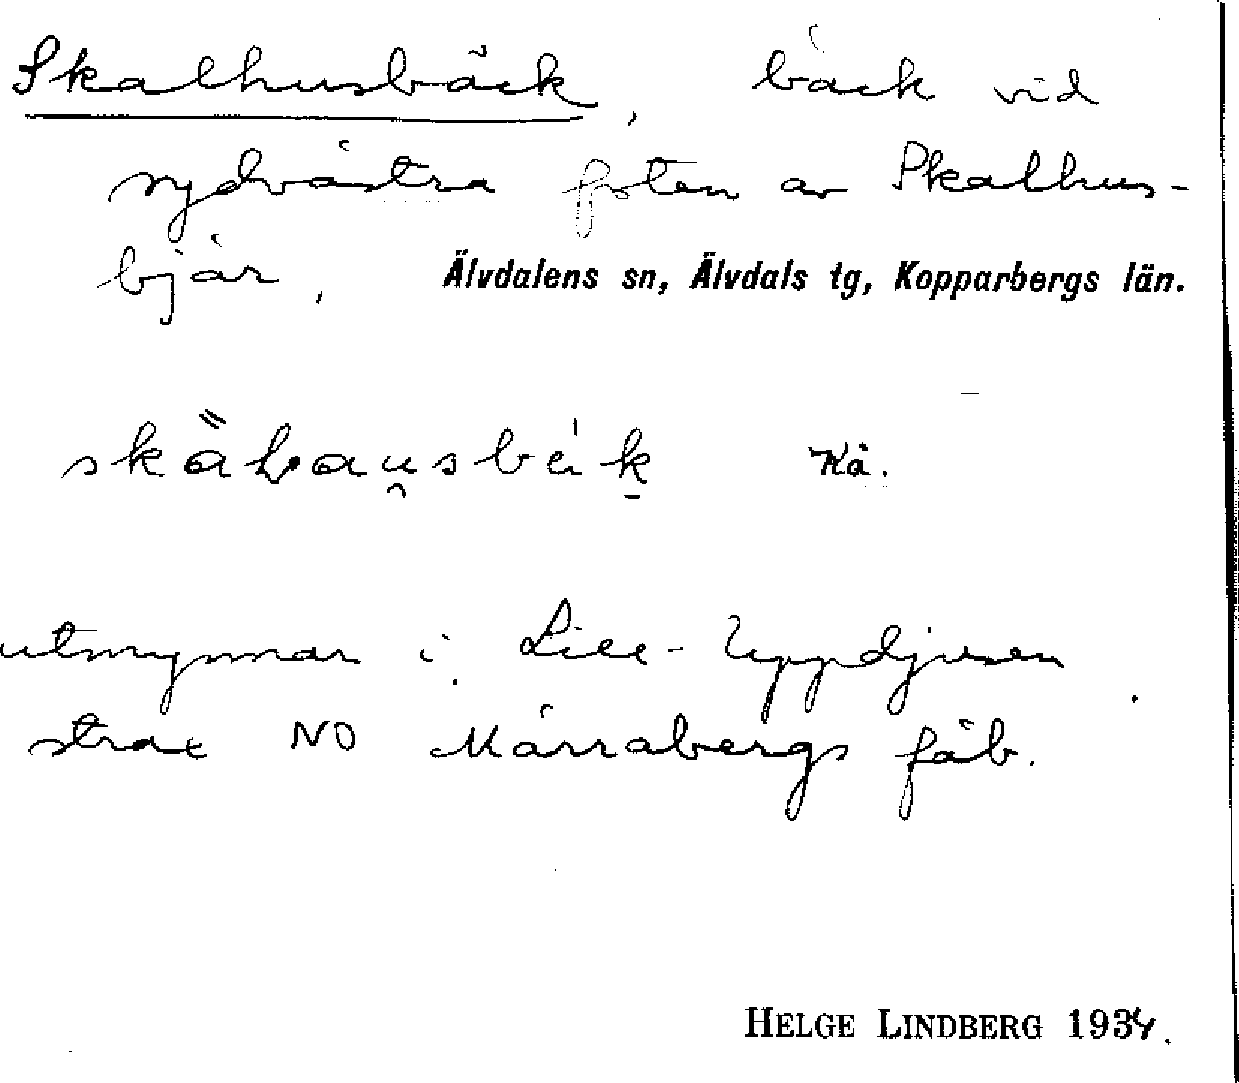 Skalhusbäck, bäck vid
sydvästra foten av Skalhus-
bjär, Älvdalens sn, Älvdals tg, Kopparbergs län.
Kå.
utmynnar i Lill-Uppdjusen
strax NO Märrabergs fäb.
HELGE LINDBERG 1934.